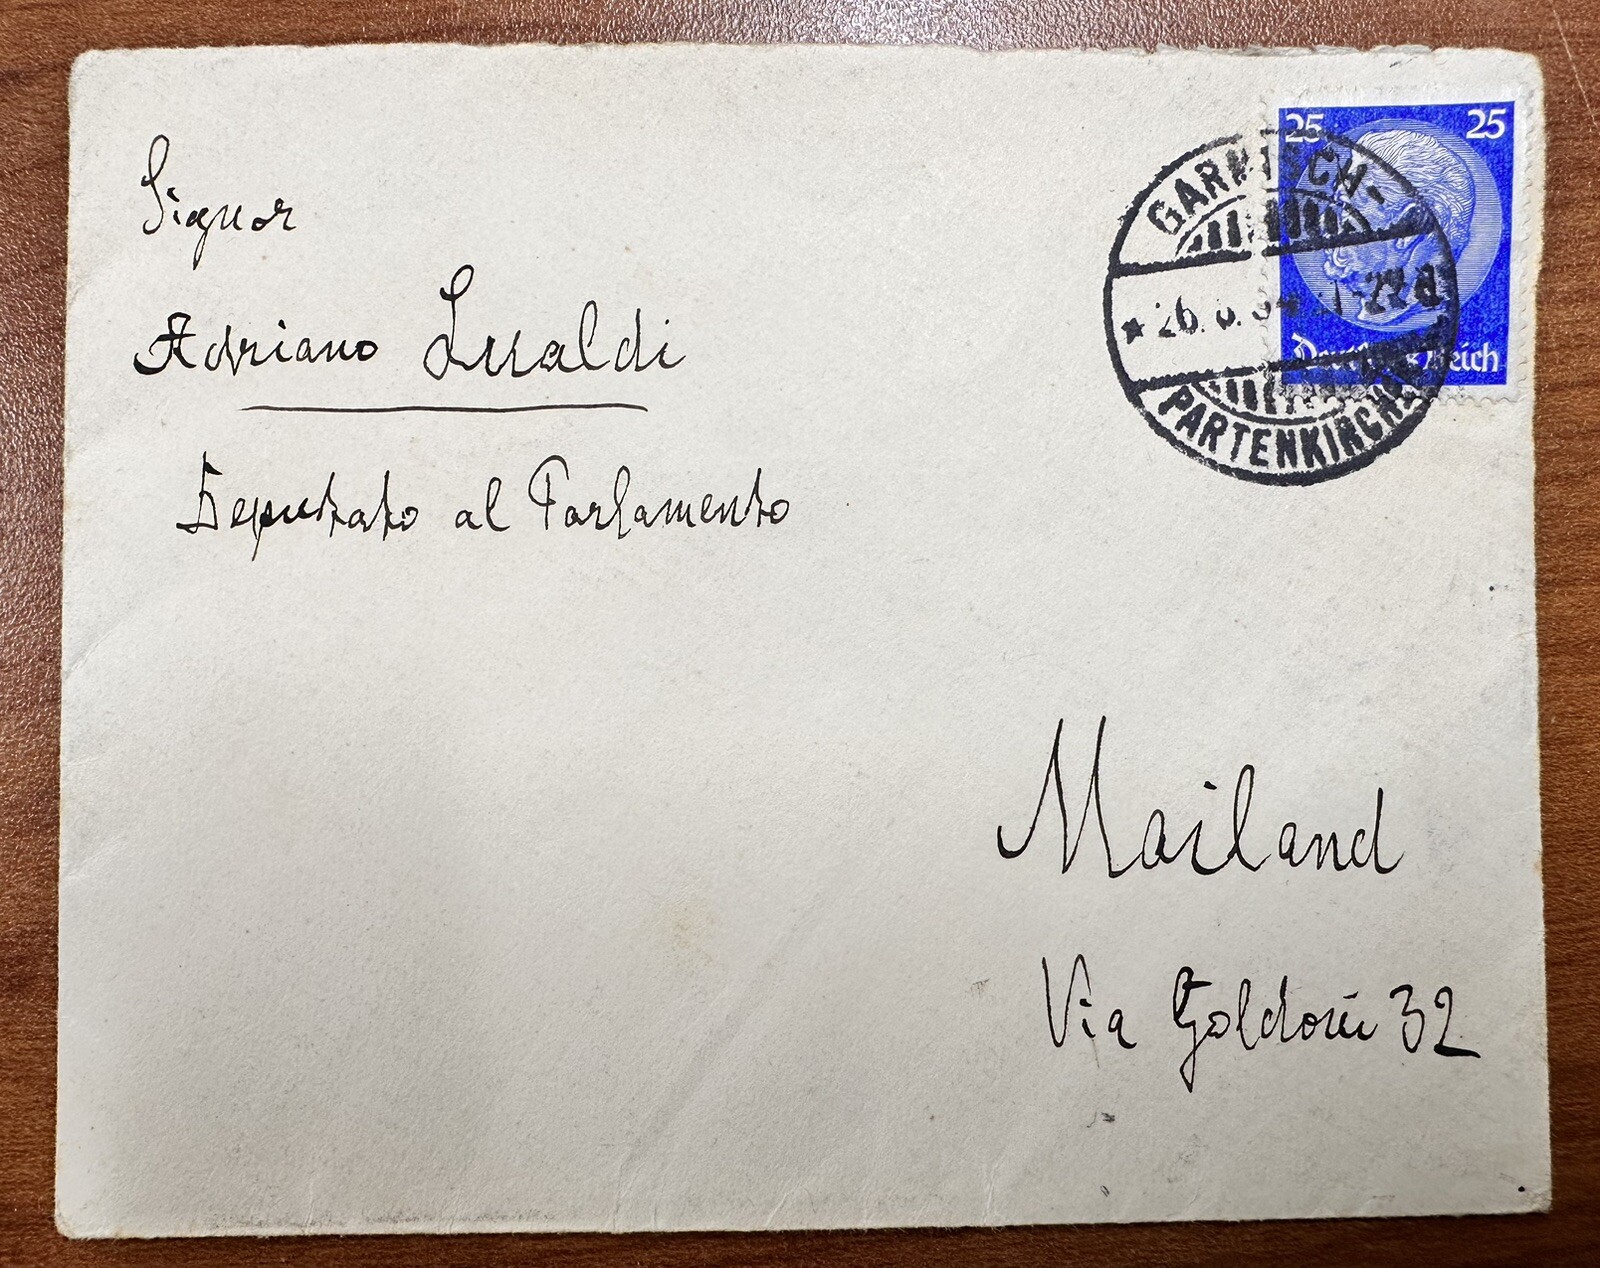 Signor
Adriano Lualdi
Deputato al Parlamento
25 25
GARMISCH-
26. 34
PARTENKIRCHEN
Deutsches Reich
Mailand
Via Goldoni 32